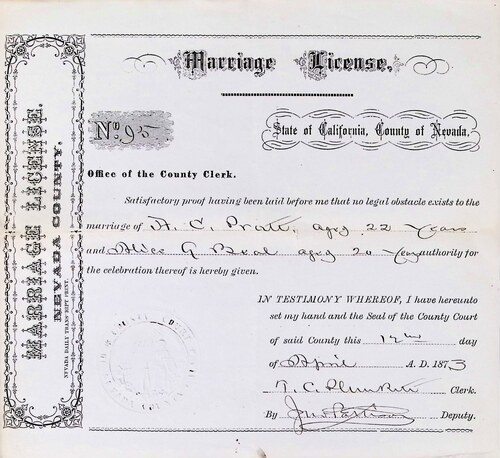 MARRIAGE LICENSE.
NEVADA COUNTY.
NEVADA DAILY TRANSCRIPT PRINT.
Marriage License.
No. 95
State of California, County of Nevada.
Office of the County Clerk.
Satisfactory proof having been laid before me that no legal obstacle exists to the
marriage of A. C. Pratt, aged 22 Years
and Alice G Beal aged 20 Years authority for
the celebration thereof is hereby given.
IN TESTIMONY WHEREOF, I have hereunto
set my hand and the Seal of the County Court
of said County this 12th day
of April A. D. 1873
T. C. Plunkett Clerk.
By Deputy.